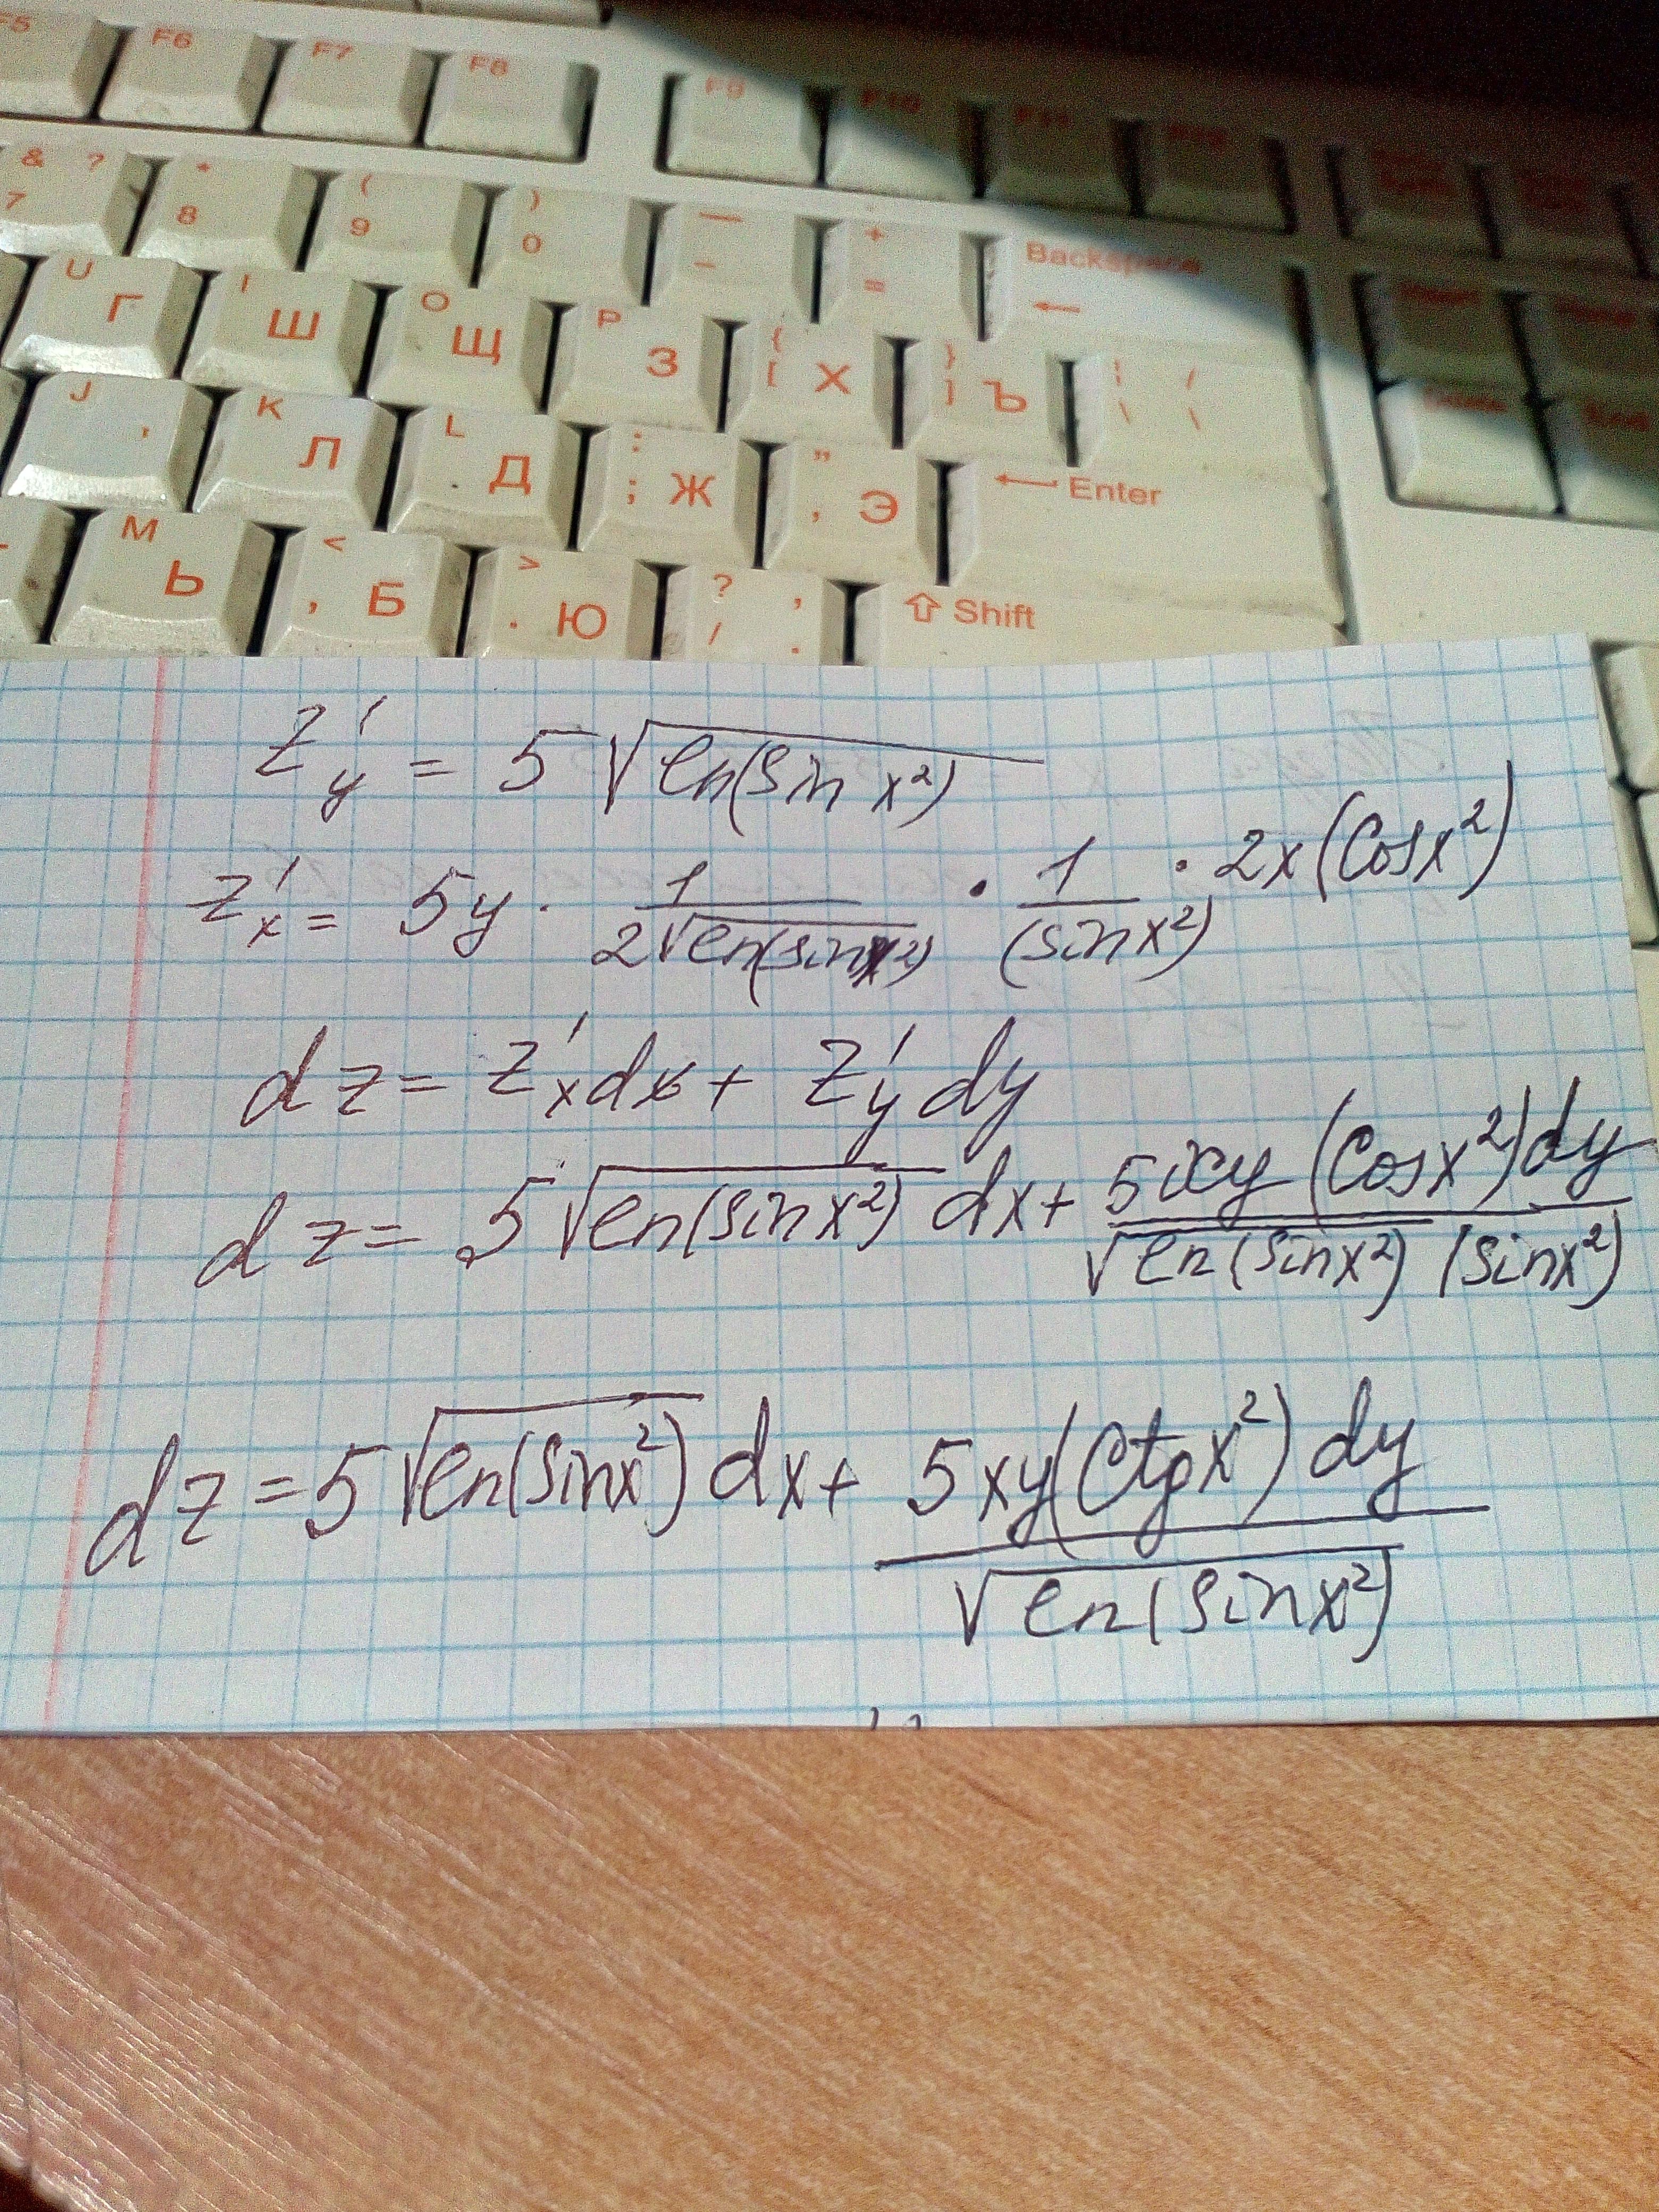 F5 F6 F7 F8 F9 F10 F11
& ? 7 * 8 ( 9 ) 0 — - + = Backspace ←
U Г I Ш O Щ P З { [ Х } ] Ъ
J K Л L Д : ; Ж " , Э ← Enter
M Ь < , Б > . Ю ? / , . ⇧ Shift
z'y = 5√(ln(sin x²))
z'x = 5y · 1/(2√(ln(sin x²))) · 1/(sin x²) · 2x(Cos x²)
dz = z'x dx + z'y dy
dz = 5√(ln(sin x²)) dx + 5xy(Cos x²)dy/(√(ln(sin x²)) (sin x²))
dz = 5√(ln(sin x²)) dx + 5xy(Ctg x²) dy/√(ln(sin x²))